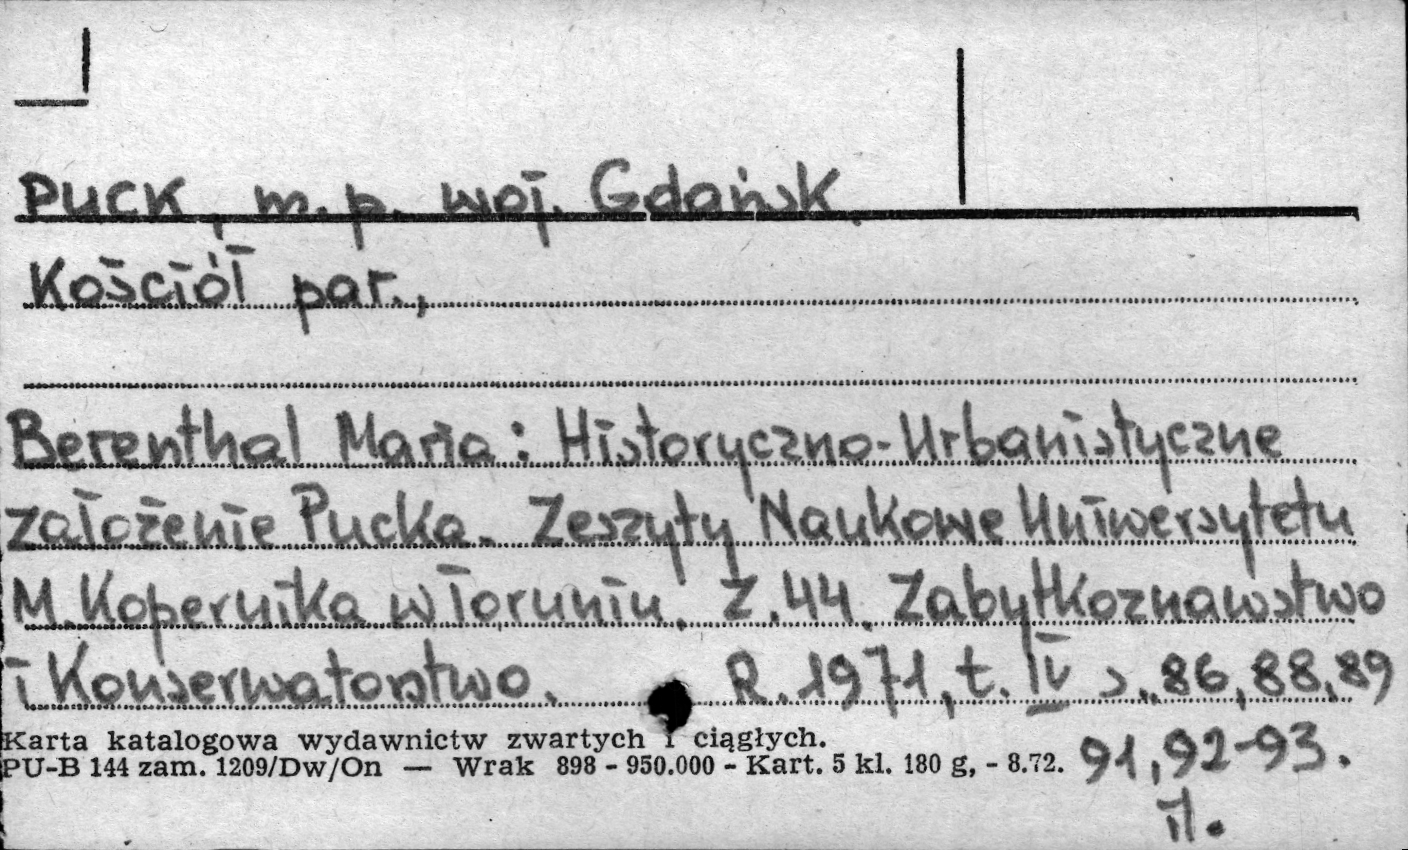 PUCK, m. p. woj. Gdańsk.
Kościół par.,
Berenthal Maria: Historyczno-Urbanistyczne
założenie Pucka. Zeszyty Naukowe Uniwersytetu
M. Kopernika w Toruniu. Z.44. Zabytkoznawstwo
i Konserwatorstwo. R. 1971, t. IV s. 86, 88, 89
Karta katalogowa wydawnictw zwartych i ciągłych.
PU-B 144 zam. 1209/Dw/On — Wrak 898 - 950.000 - Kart. 5 kl. 180 g, - 8.72.
91, 92-93.
il.